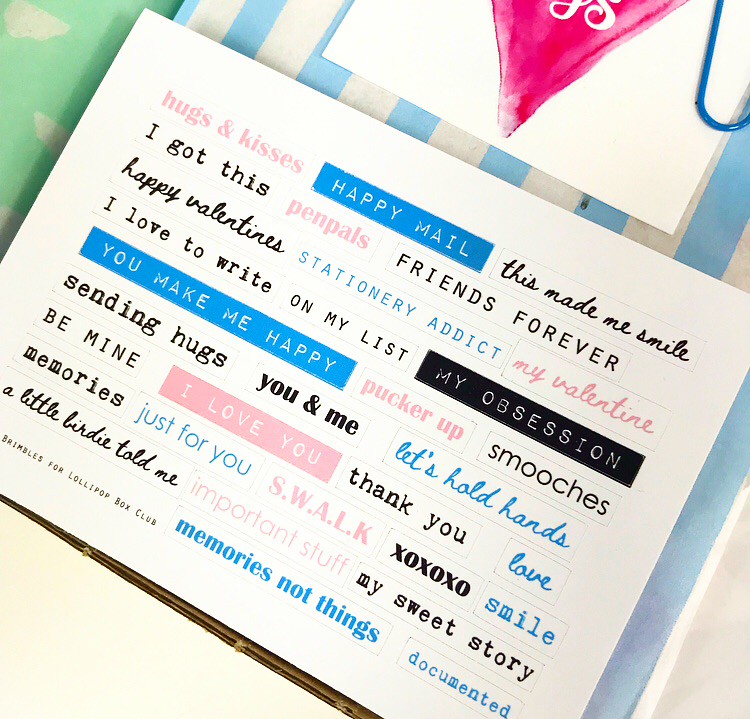 hugs & kisses
I got this
HAPPY MAIL
happy valentines
penpals
this made me smile
I love to write
STATIONERY ADDICT
FRIENDS FOREVER
YOU MAKE ME HAPPY
ON MY LIST
my valentine
sending hugs
MY OBSESSION
BE MINE
you & me
pucker up
smooches
memories
I LOVE YOU
let's hold hands
a little birdie told me
just for you
thank you
love
important stuff
S.W.A.L.K
xoxoxo
smile
memories not things
my sweet story
documented
BRIMBLES FOR LOLLIPOP BOX CLUB